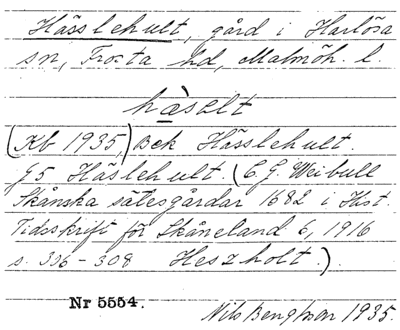 Hässlehult, gård i Harlösa
sn, Frosta hd, Malmöh. l.
hàsɛlt
(Kb 1935,) Bek Hässlehult.
G5 Häslehult. (C.G. Weibull
Skånska sätesgårdar 1682 i Hist.
Tidsskrift för Skåneland 6, 1916
s. 306-308 Heszholt.)
Nr 5554.
Nils Bengtson 1935.